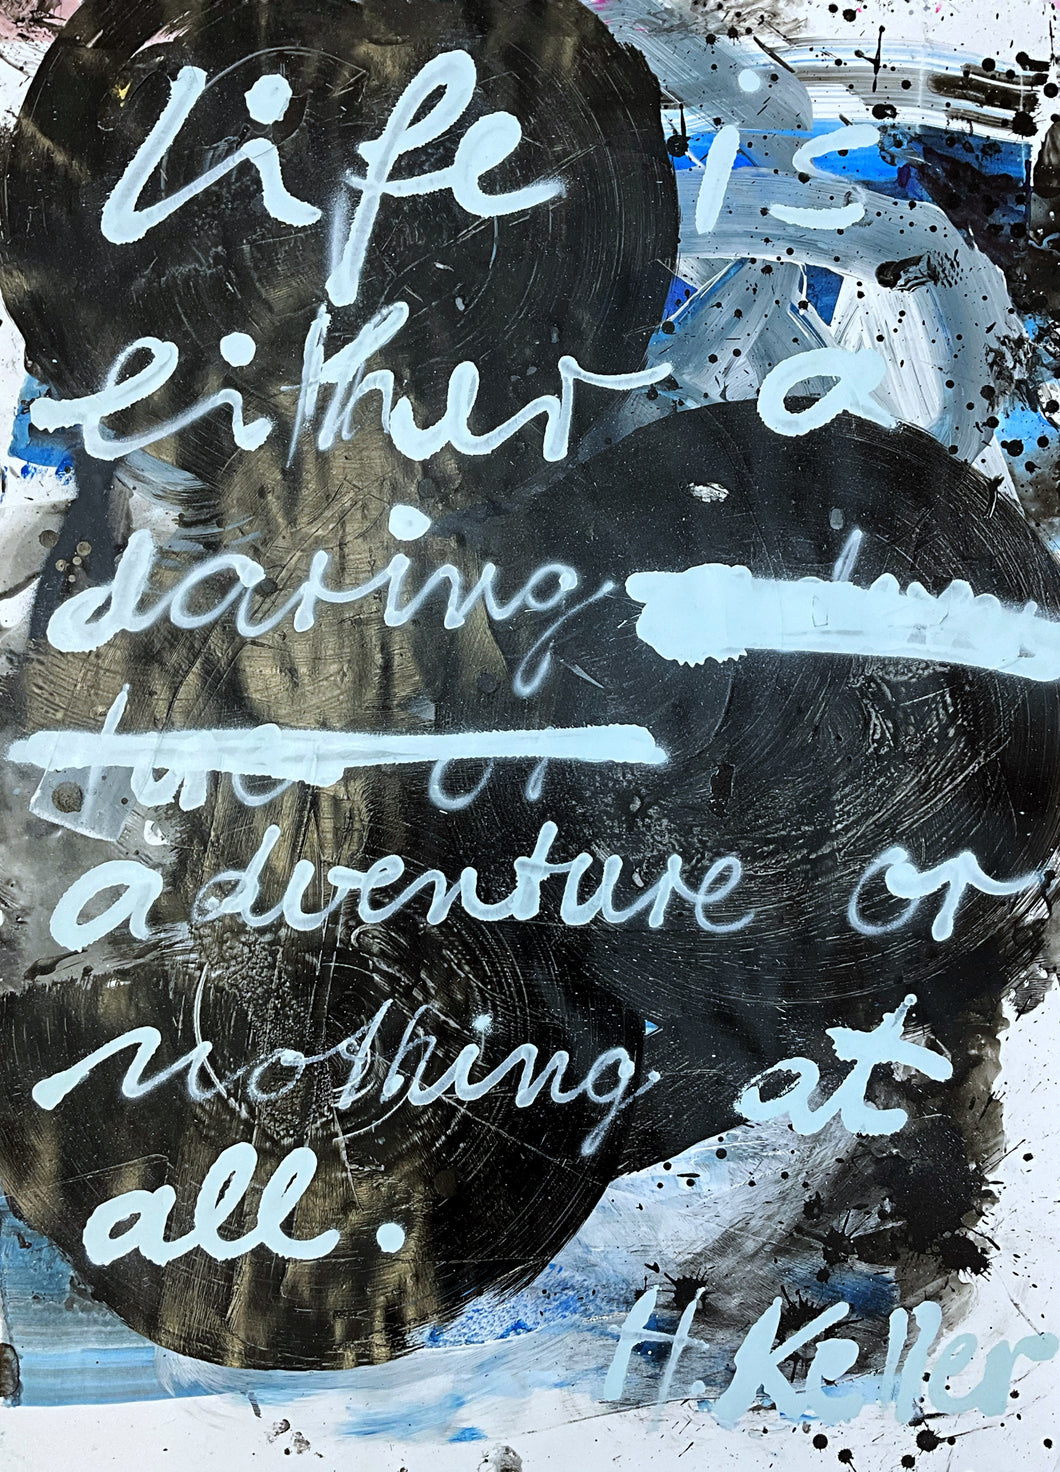 Life is
either a
daring
or
adventure or
nothing at
all.
H. Keller